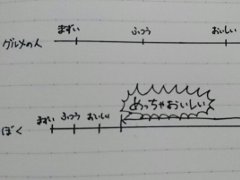 まずい ふつう おいしい
グルメの人
めっちゃおいしい
まずい ふつう おいしい
ぼく